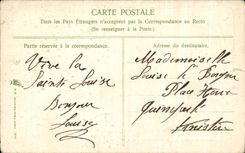 CARTE POSTALE
Tous les Pays Étrangers n'acceptent pas la Correspondance au Recto
(Se renseigner à la Poste.)
Partie réservée à la correspondance.
Adresse du destinataire.
Vive la
Sainte Louise
Bonjour
Louise
Mademoiselle
Louise le
Place
Quimper
Finistère